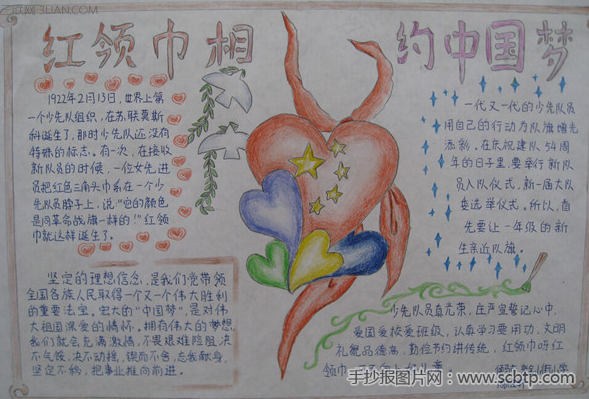 红领巾相约中国梦
1922年2月13日,世界上第
一个少先队组织,在苏联莫斯
科诞生了,那时少先队还没有
特殊的标志。有一次,在接收
新队员的时候,一位女先进
员把红色三角头巾系在一个少
先队员脖子上,说:"它的颜色
是同革命战旗一样的!"红领
巾就这样诞生了。
一代又一代的少先队员
用自己的行动为队旗增光
添彩,在庆祝建队54周
年的日子里,要举行新队
员入队仪式,新一届大队
委选举仪式。所以,首
先要让一年级的新
生亲近队旗。
坚定的理想信念,是我们党带领
全国各族人民取得一个又一个伟大胜利
的重要法宝。宏大的"中国梦",是对伟
大祖国深爱的情怀。拥有伟大的梦想,
我们就会充满激情,不畏艰难险阻,决
不气馁,决不动摇,锲而不舍,忘我献身,
坚定不移,把事业推向前进。
少先队员真光荣,庄严宣誓记心中,
爱国爱校爱班级,认真学习要用功,文明
礼貌品德高,勤俭节约讲传统,红领巾呀红
领巾
手抄报图片网:www.scbtp.com